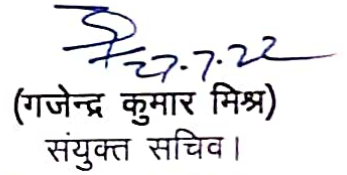 27.7.22
(गजेन्द्र कुमार मिश्र)
संयुक्त सचिव।